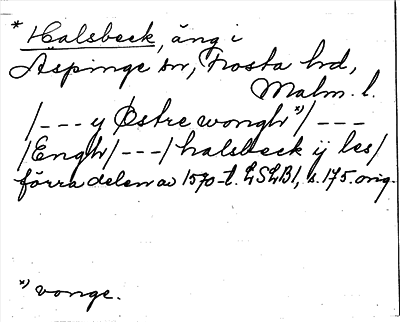 * Halsbeck, äng i
Aspinge sn, Frosta hd,
Malm. l.
/--- y Østre wongh *)/ ---
/Engh/ ---/ halsbeck ÿ les/
förra delen av 1570-t. LSLB1, s. 175. orig.
*) vonge.